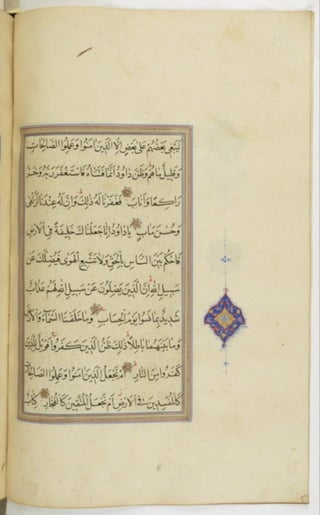 لیبغی بعضهم علی بعض الا الذین امنوا وعملوا الصالحات
وقلیل ما هم وظن داود انما فتناه فاستغفر ربه وخر
راکعا واناب فغفرنا له ذلک وان له عندنا لزلفی
وحسن ماب یا داود انا جعلناک خلیفة فی الارض
فاحکم بین الناس بالحق ولا تتبع الهوی فیضلک عن
سبیل الله ان الذین یضلون عن سبیل الله لهم عذاب
شدید بما نسوا یوم الحساب وما خلقنا السماء والارض
وما بینهما باطلا ذلک ظن الذین کفروا فویل للذین
کفروا من النار ام نجعل الذین امنوا وعملوا الصالحات
کالمفسدین فی الارض ام نجعل المتقین کالفجار کتاب